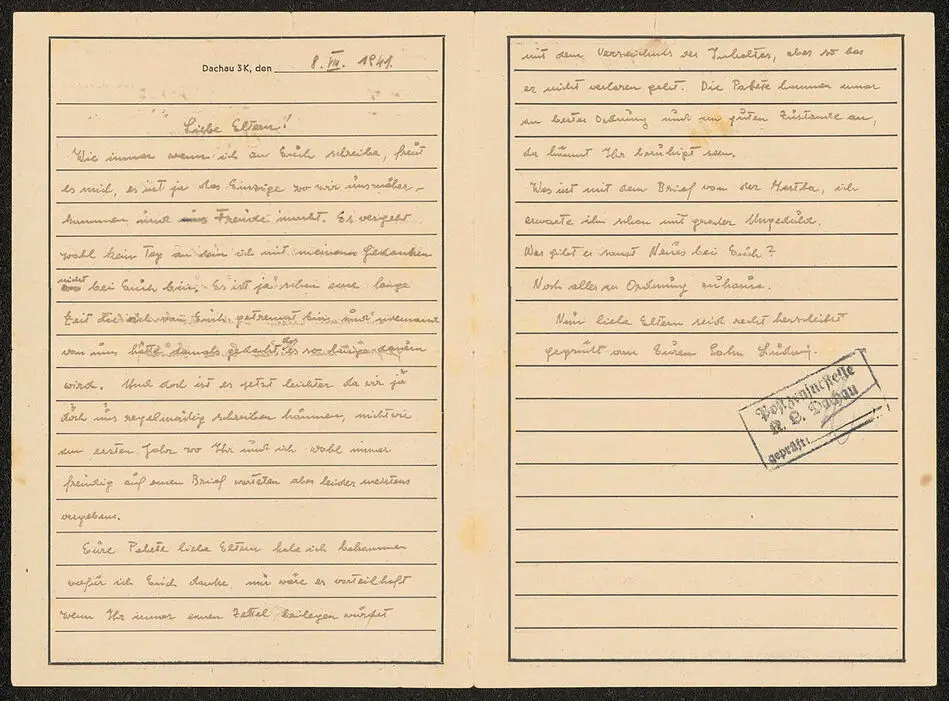 Dachau 3K, den 8. VII. 1941.
Liebe Eltern!
Wie immer wenn ich an Euch schreibe, freut
es mich, es ist ja das Einzige wo wir uns näher-
kommen und Freude macht. Es vergeht
wohl kein Tag an dem ich mit meinem Gedanken
nicht bei Euch bin. Es ist ja schon eine lange
Zeit die ich von Euch getrennt bin, und niemand
von uns hätte damals gedacht das es so lange dauern
wird. Und doch ist es jetzt leichter da wir ja
doch uns regelmäsig schreiben können, nicht wie
im ersten Jahr wo Ihr und ich wohl immer
freudig auf einen Brief warteten aber leider meistens
vergebens.
Eure Pakete liebe Eltern habe ich bekommen
wofür ich Euch danke mir wäre es vorteilhaft
wenn Ihr immer einen Zettel beilegen würdet
mit dem Verzeichnis des Inhaltes, aber so das
er nicht verloren geht. Die Pakete kommen immer
in bester Ordnung und im guten Zustande an,
da könnt Ihr beruhigt sein.
Was ist mit dem Brief von der Martha, ich
erwarte ihn schon mit grosser Ungeduld.
Was gibt es sonst Neues bei Euch?
Noch alles in Ordnung zuhause.
Nun liebe Eltern seid recht herzlichst
gegrüßt von Euren Sohn Ludwig.
Postzensurstelle
K. L. Dachau
geprüft: